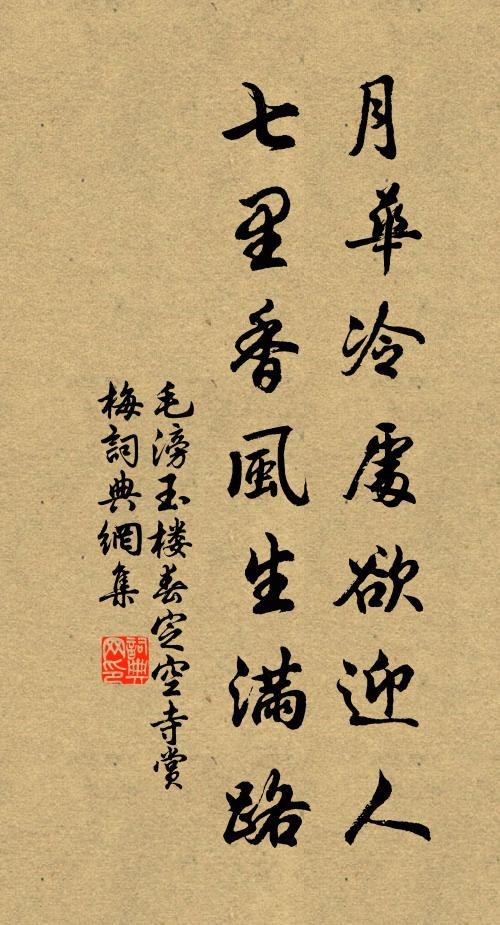 月華冷處欲迎人
七里香風生滿路
毛滂玉楼春定空寺赏
梅詞典網集
詞典網印